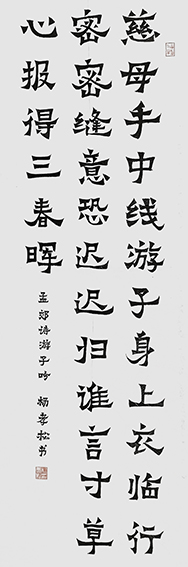 慈母手中线游子身上衣临行
密密缝意恐迟迟归谁言寸草
心报得三春晖
孟郊诗游子吟 杨孝松书